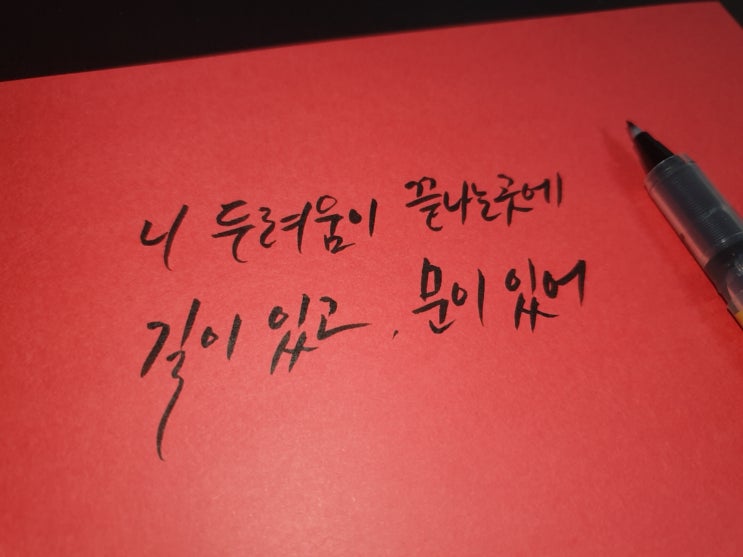 니 두려움이 끝나는곳에
길이 있고, 문이 있어